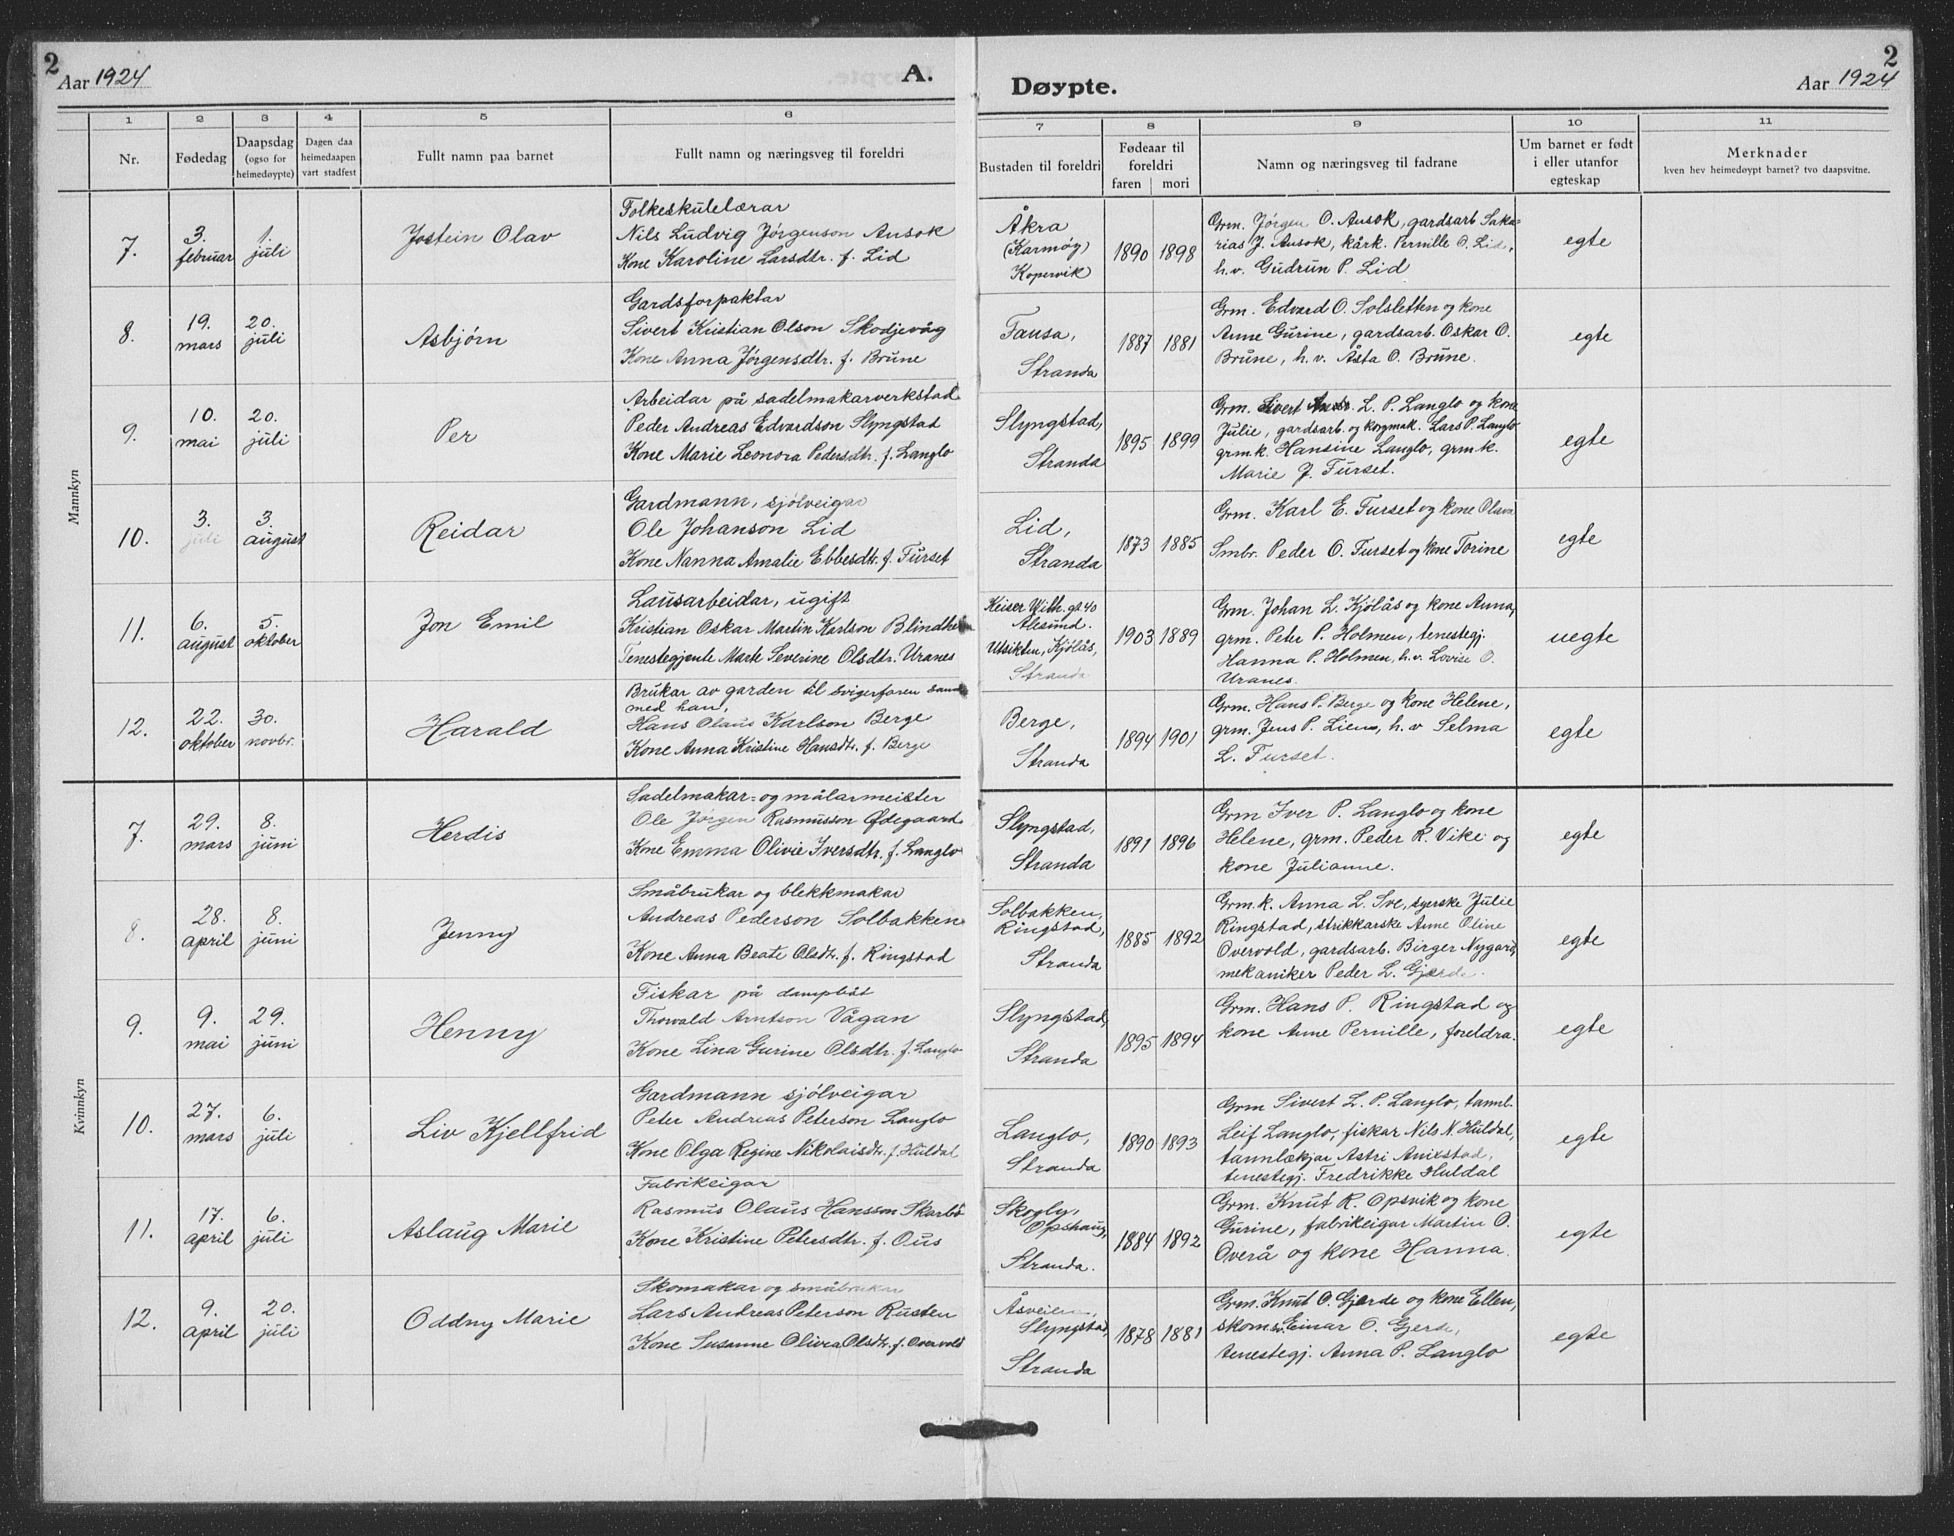 2
Aar 1924
A.
Døypte.
2
Aar 1924
1 2 3 4 5 6 7 8 9 10 11
Nr.
Fødedag
Daapsdag
(ogso for
heimedøypte)
Dagen daa
heimedaapen
vart stadfest
Fullt namn paa barnet
Fullt namn og næringsveg til foreldri
Bustaden til foreldri
Fødeaar til
foreldri
faren mori
Namn og næringsveg til fadrane
Um barnet er født
i eller utanfor
egteskap
Merknader
kven hev heimedøypt barnet? tvo daapsvitne.
Mannkyn
7.
3.
februar
1.
juli
Jostein Olav
Folkeskulelærar
Nils Ludvig Jørgenson Ansok
Kone Karoline Larsdtr. f. Lid
Åkra
(Karmøy)
Kopervik
1890 1898
Grm. Jørgen O. Ansok, gardsarb. Saka-
rias J. Ansok, kårk. Pernille O. Lid,
h.v. Gudrun P. Lid
egte
8.
19.
mars
20.
juli
Asbjørn
Gardsforpaktar
Sivert Kristian Olson Skodjevåg
Kone Anna Jørgensdtr. f. Brune
Tausa,
Stranda
1887 1881
Grm. Edvard O. Solsletten og kone
Anne Gurine, gardsarb. Oskar O.
Brune, h.v. Åsta O. Brune.
egte
9.
10.
mai
20.
juli
Per
Arbeidar på sadelmakarverkstad
Peder Andreas Edvardson Slyngstad
Kone Marie Leonora Pedersdtr. f. Langlo
Slyngstad,
Stranda
1895 1899
Grm. Sivert L. P. Langlo og kone
Julie, gardsarb. og korgmak. Lars P. Langlo
grm.k. Hansine Langlo, grm.k.
Marie J. Furset.
egte
10.
3.
juli
3.
august
Reidar
Gardmann, sjølveigar
Ole Johanson Lid
Kone Nanna Amalie Ebbesdtr. f. Furset
Lid,
Stranda
1873 1885
Grm. Karl E. Furset og kone Olava
Smbr. Peder O. Furset og kone Torine
egte
11.
6.
august
5.
oktober
Jon Emil
Lausarbeidar, ugift
Kristian Oskar Martin Karlson Blindheim
Tenestegjente Marte Severine Olsdtr. Uranes
Keiser Wilh. gt 40
Ålesund.
Utsikten, Kjølås,
Stranda
1903 1889
Grm. Johan L. Kjølås og kone Anna,
grm. Peter P. Holmen, tenestegj.
Hanna P. Holmen, h.v. Lovise O.
Uranes.
uegte
12.
22.
oktober
30.
novbr.
Harald
Brukar av garden til svigerfaren saman
med han,
Hans Olaus Karlson Berge
Kone Anna Kristine Hansdtr. f. Berge
Berge,
Stranda
1894 1901
Grm. Hans P. Berge og kone Helene,
grm. Jens P. Liens, h.v Selma
L. Furset.
egte
Kvinnkyn
7.
29.
mars
8.
juni
Herdis
Sadelmakar- og målarmeister
Ole Jørgen Rasmusson Ødegaard
Kone Emma Olivie Iversdtr. f. Langlo
Slyngstad,
Stranda
1891 1896
Grm Iver P. Langlo og kone
Helene, grm. Peder R. Vike og
kone Julianne.
egte
8.
28.
april
8.
juni
Jenny
Småbrukar og blekkmakar
Andreas Pederson Solbakken
Kone Anna Beate Olsdtr. f. Ringstad
Solbakken,
Ringstad,
Stranda
1885 1892
Grm.k. Anna L. Sve, syerske Julie
Ringstad, strikkarske Anne Oline
Overvold, gardsarb. Birger Nygard,
mekaniker Peder L. Gjerde.
egte
9.
9.
mai
29.
juni
Henny
Fiskar på dampbåt
Thorvald Arntson Vågan
Kone Lina Gurine Olsdtr. f. Langlo
Slyngstad,
Stranda
1895 1894
Grm. Hans P. Ringstad og
kone Anne Pernille, foreldra.
egte
10.
27.
mars
6.
juli
Liv Kjellfrid
Gardmann sjølveigar
Peter Andreas Peterson Langlo
Kone Olga Regine Nikolaisdtr. f. Huldal
Langlo,
Stranda
1890 1893
Grm Sivert L. P. Langlo, tannl.
Leif Langlo, fiskar Nils N. Huldal,
tannlækjar Astri
tenestegj. Fredrikke Huldal
egte
11.
17.
april
6.
juli
Aslaug Marie
Fabrikeigar
Rasmus Olaus Hansson Skarbø
Kone Kristine Petersdtr. f. Ous
Skogly,
Opshaug,
Stranda.
1884 1892
Grm. Knut R. Opsvik og kone
Gurine, fabrikeigar Martin O.
Overå og kone Hanna.
egte
12.
9.
april
20.
juli
Oddny Marie
Skomakar og småbrukar
Lars Andreas Peterson Rusten
Kone Susanne Olivia Olsdtr. f. Overvold
Åsveien,
Slyngstad,
Stranda
1878 1881
Grm. Knut O. Gjerde og kone Ellen,
skoms. Einar O. Gjerde,
tenestegj. Anna P. Langlo
egte